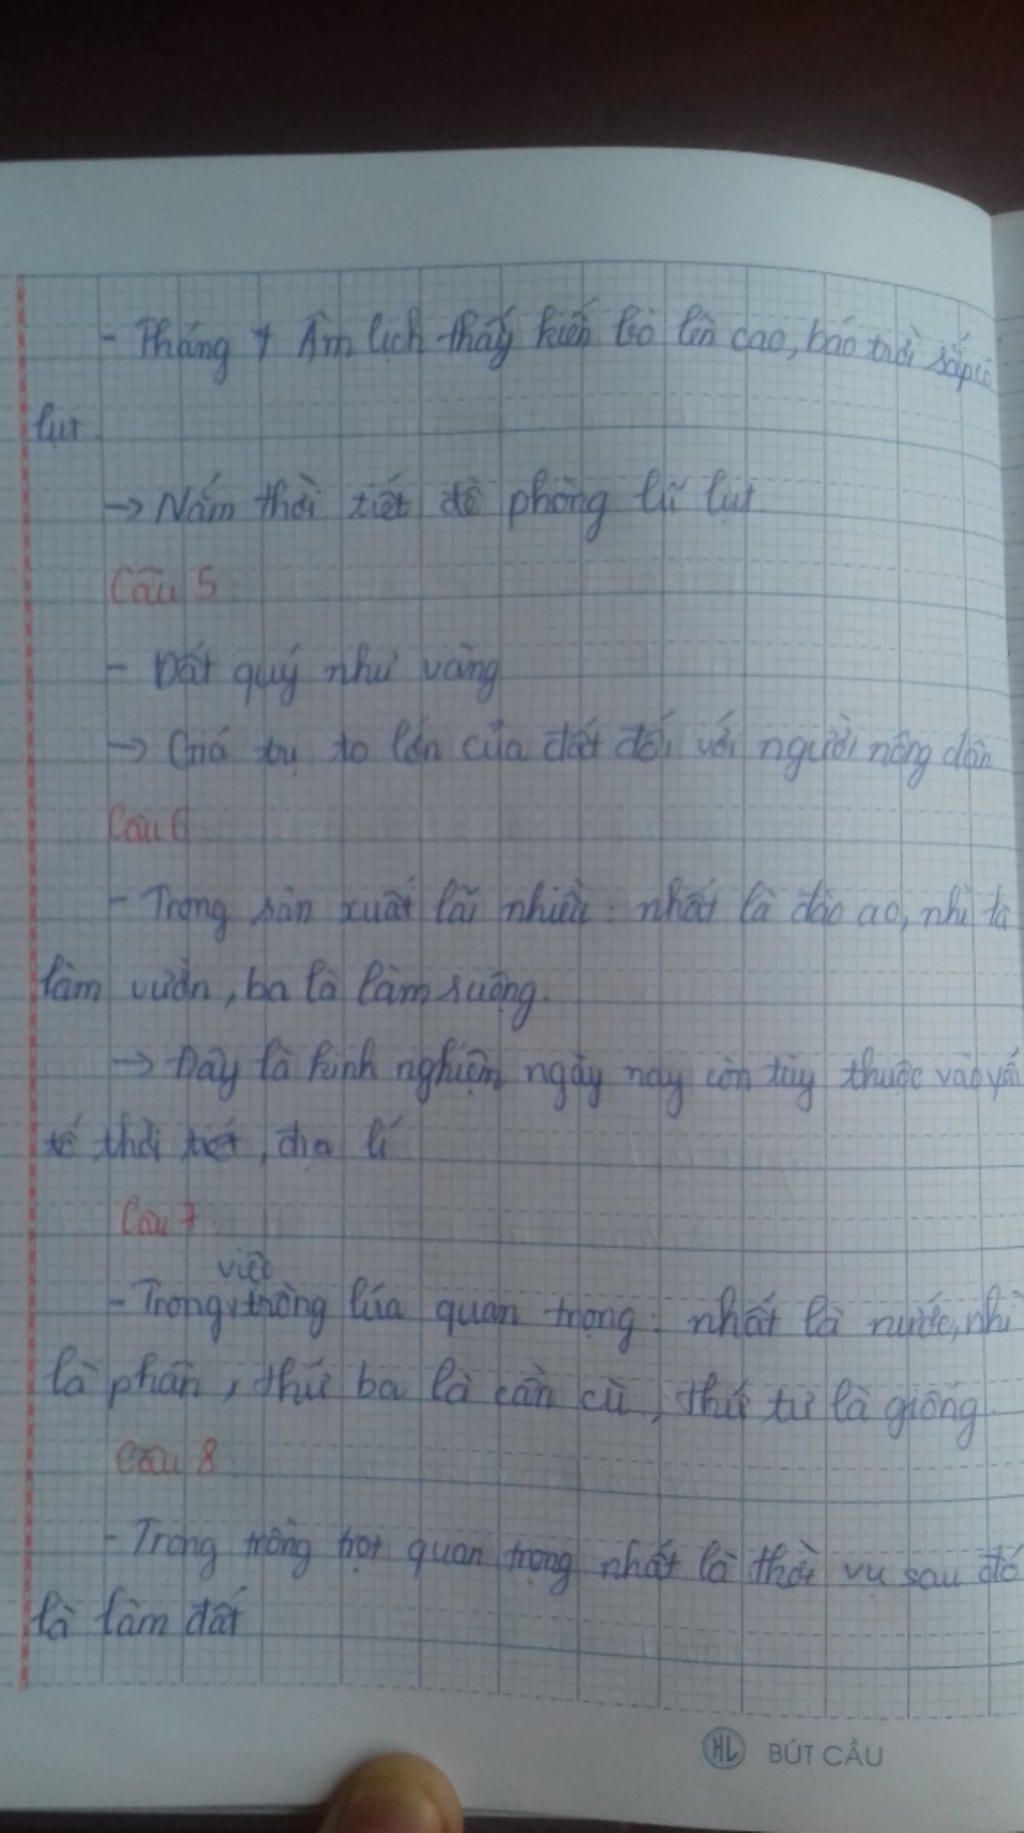 - Tháng 7 Âm lịch thấy kiến bò lên cao, báo trời sắp có
lụt.
→ Nắm thời tiết đề phòng lũ lụt.
Câu 5
- Đất quý như vàng
→ Giá trị to lớn của đất đối với người nông dân
Câu 6
- Trong sản xuất lãi nhiều: nhất là đào ao, nhì là
làm vườn, ba là làm ruộng.
→ Đây là kinh nghiệm ngày nay còn tùy thuộc vào yếu
tố thời tiết, địa lí
Câu 7
việc
- Trong trồng lúa quan trọng: nhất là nước, nhì
là phân, thứ ba là cần cù, thứ tư là giống.
Câu 8
- Trong trồng trọt quan trọng nhất là thời vụ sau đó
là làm đất
HL BÚT CẦU